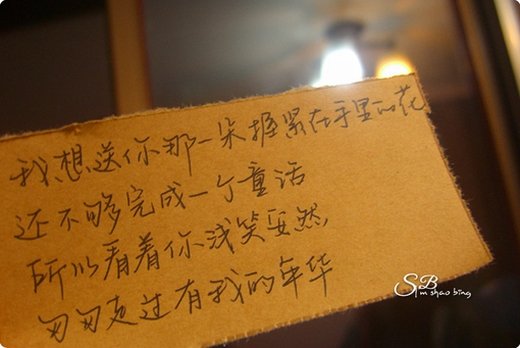 我想送你那一朵握紧在手里的花
还不够完成一个童话
所以看着你浅笑安然,
匆匆走过有我的年华
SB
m shao bing